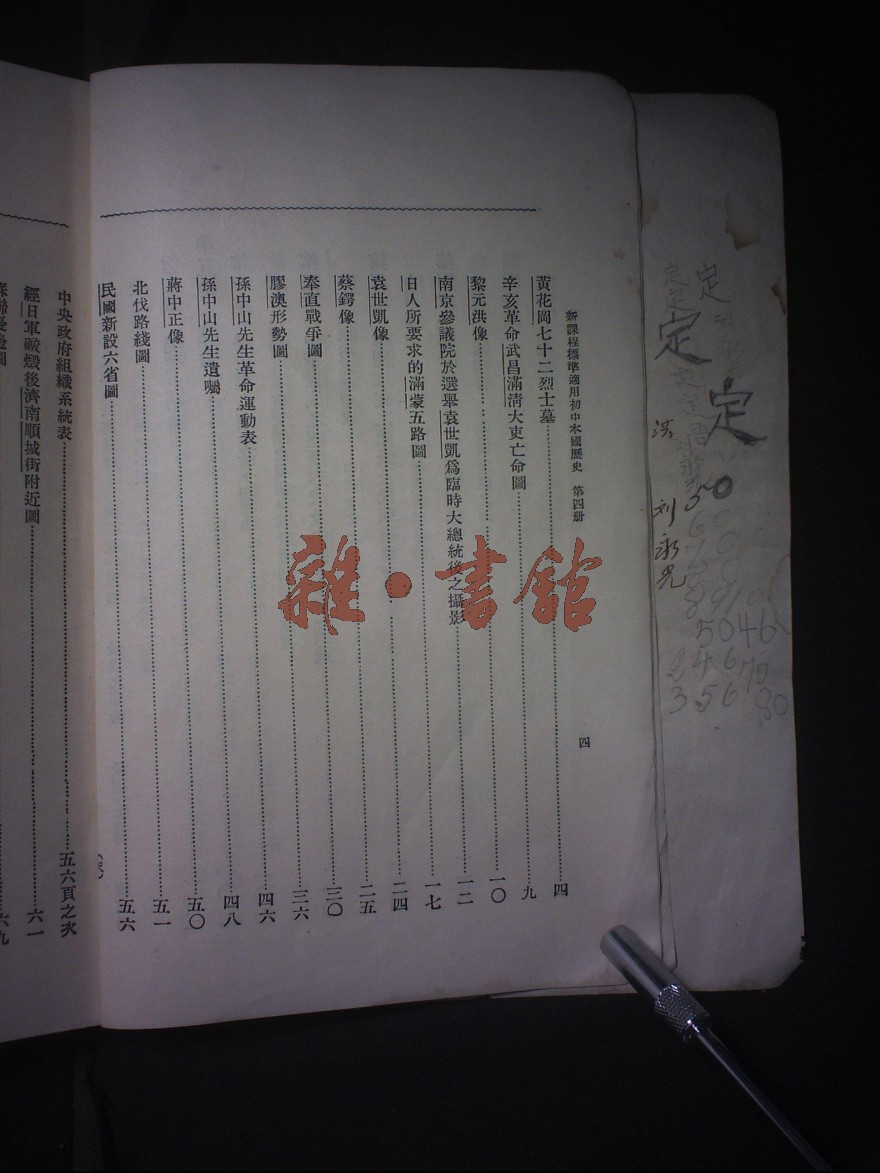 定
定
定
定
定
洪
刘永光
50
5046
24670
35680
新課程標準適用初中本國歷史 第四册 四
黃花岡七十二烈士墓……四
辛亥革命武昌滿清大吏亡命圖……九
黎元洪像……一〇
南京參議院於選舉袁世凱爲臨時大總統後之攝影……一二
日人所要求的滿蒙五路圖……一七
袁世凱像……二四
蔡鍔像……二五
奉直戰爭圖……三〇
膠澳形勢圖……三六
孫中山先生革命運動表……四六
孫中山先生遺囑……四八
蔣中正像……五〇
北伐路綫圖……五一
民國新設六省圖……五六
中央政府組織系統表……五六頁之次
經日軍毀燬後濟南順城街附近圖……六一
六九
雜·書館